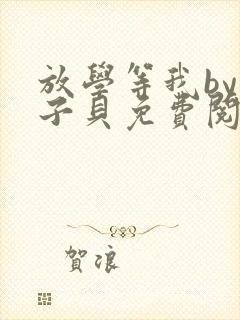 放學等我by
子貝免費閱
賀浪